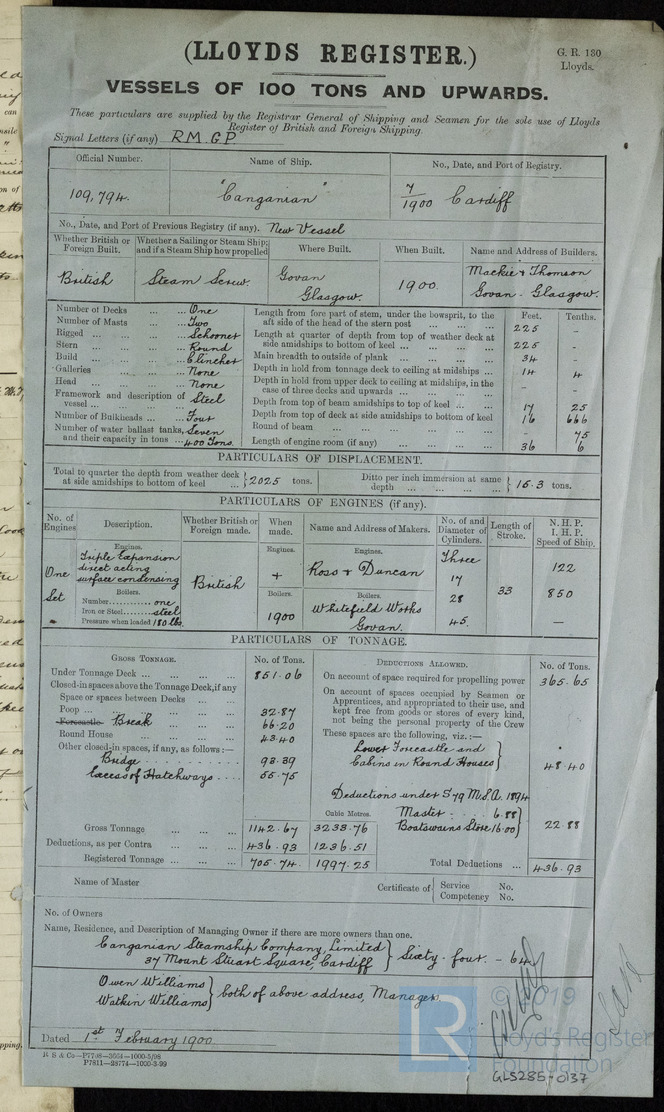 (LLOYDS REGISTER.)
G. R. 130
Lloyds.
VESSELS OF 100 TONS AND UPWARDS.
These particulars are supplied by the Registrar General of Shipping and Seamen for the sole use of Lloyds
Register of British and Foreign Shipping.
Signal Letters (if any) R.M.G.P
Official Number. Name of Ship. No., Date, and Port of Registry.
109,794. "Canganian" 7/1900 Cardiff
No., Date, and Port of Previous Registry (if any). New Vessel
Whether British or Foreign Built. Whether a Sailing or Steam Ship; and if a Steam Ship how propelled Where Built. When Built. Name and Address of Builders.
British Steam Screw. Govan Glasgow. 1900. Mackie & Thomson Govan - Glasgow.
Number of Decks ... ... One
Number of Masts ... ... Two
Rigged ... ... ... Schooner
Stern ... ... ... Round
Build ... ... ... Clincher
Galleries ... ... ... None
Head ... ... ... None
Framework and description of vessel ... ... ... Steel
Number of Bulkheads ... ... Four
Number of water ballast tanks, Seven
and their capacity in tons ... 400 Tons.
Feet. Tenths.
Length from fore part of stem, under the bowsprit, to the
aft side of the head of the stern post ... ... ... 225 -
Length at quarter of depth from top of weather deck at
side amidships to bottom of keel ... ... ... 225 -
Main breadth to outside of plank ... ... ... 34 -
Depth in hold from tonnage deck to ceiling at midships ... 14 4
Depth in hold from upper deck to ceiling at midships, in the
case of three decks and upwards ... ... ... - -
Depth from top of beam amidships to top of keel ... ... 17 25
Depth from top of deck at side amidships to bottom of keel 16 666
Round of beam ... ... ... - 75
Length of engine room (if any) ... ... ... 36 6
PARTICULARS OF DISPLACEMENT.
Total to quarter the depth from weather deck
at side amidships to bottom of keel ... } 2025 tons.
Ditto per inch immersion at same
depth ... ... ... } 15.3 tons.
PARTICULARS OF ENGINES (if any).
No. of Engines Description. Whether British or Foreign made. When made. Name and Address of Makers. No. of and Diameter of Cylinders. Length of Stroke. N. H. P. I. H. P. Speed of Ship.
One Set
Engines.
Triple Expansion
direct acting
surface condensing
Boilers.
Number............ one
Iron or Steel........ steel
Pressure when loaded 180 lbs.
British
Engines.
+
Boilers.
1900
Engines.
Ross & Duncan
Boilers.
Whitefield Works
Govan.
Three
17
28
45.
33
122
850
—
PARTICULARS OF TONNAGE.
GROSS TONNAGE. No. of Tons.
Under Tonnage Deck ... ... ... 851.06
Closed-in spaces above the Tonnage Deck, if any
Space or spaces between Decks ... ...
Poop ... ... ... 32.87
Forecastle Break 66.20
Round House ... ... ... 43.40
Other closed-in spaces, if any, as follows :—
Bridge 93.39
Excess of Hatchways 55.75
Cubic Metres.
Gross Tonnage ... ... ... 1142.67 3233.76
Deductions, as per Contra ... ... 436.93 1236.51
Registered Tonnage ... ... 705.74. 1997.25
DEDUCTIONS ALLOWED. No. of Tons.
On account of space required for propelling power 365.65
On account of spaces occupied by Seamen or
Apprentices, and appropriated to their use, and
kept free from goods or stores of every kind,
not being the personal property of the Crew
These spaces are the following, viz. :—
Lower Forecastle and
Cabins in Round Houses } 48.40
Deductions under S 79 M.S.A. 1894
Master 6.88
Boatswains Store 16.00 } 22.88
Total Deductions ... 436.93
Name of Master
Certificate of Service No.
Competency No.
No. of Owners
Name, Residence, and Description of Managing Owner if there are more owners than one.
Canganian Steamship Company, Limited
37 Mount Stuart Square, Cardiff } Sixty-four - 64
Owen Williams
Watkin Williams } both of above address, Managers.
Dated 1st February 1900
R S & Co—P7708—3564—1000-5/98
P7811—23774—1000-3-99
LR
© 2019
Lloyd's Register
Foundation
GLS285-0137